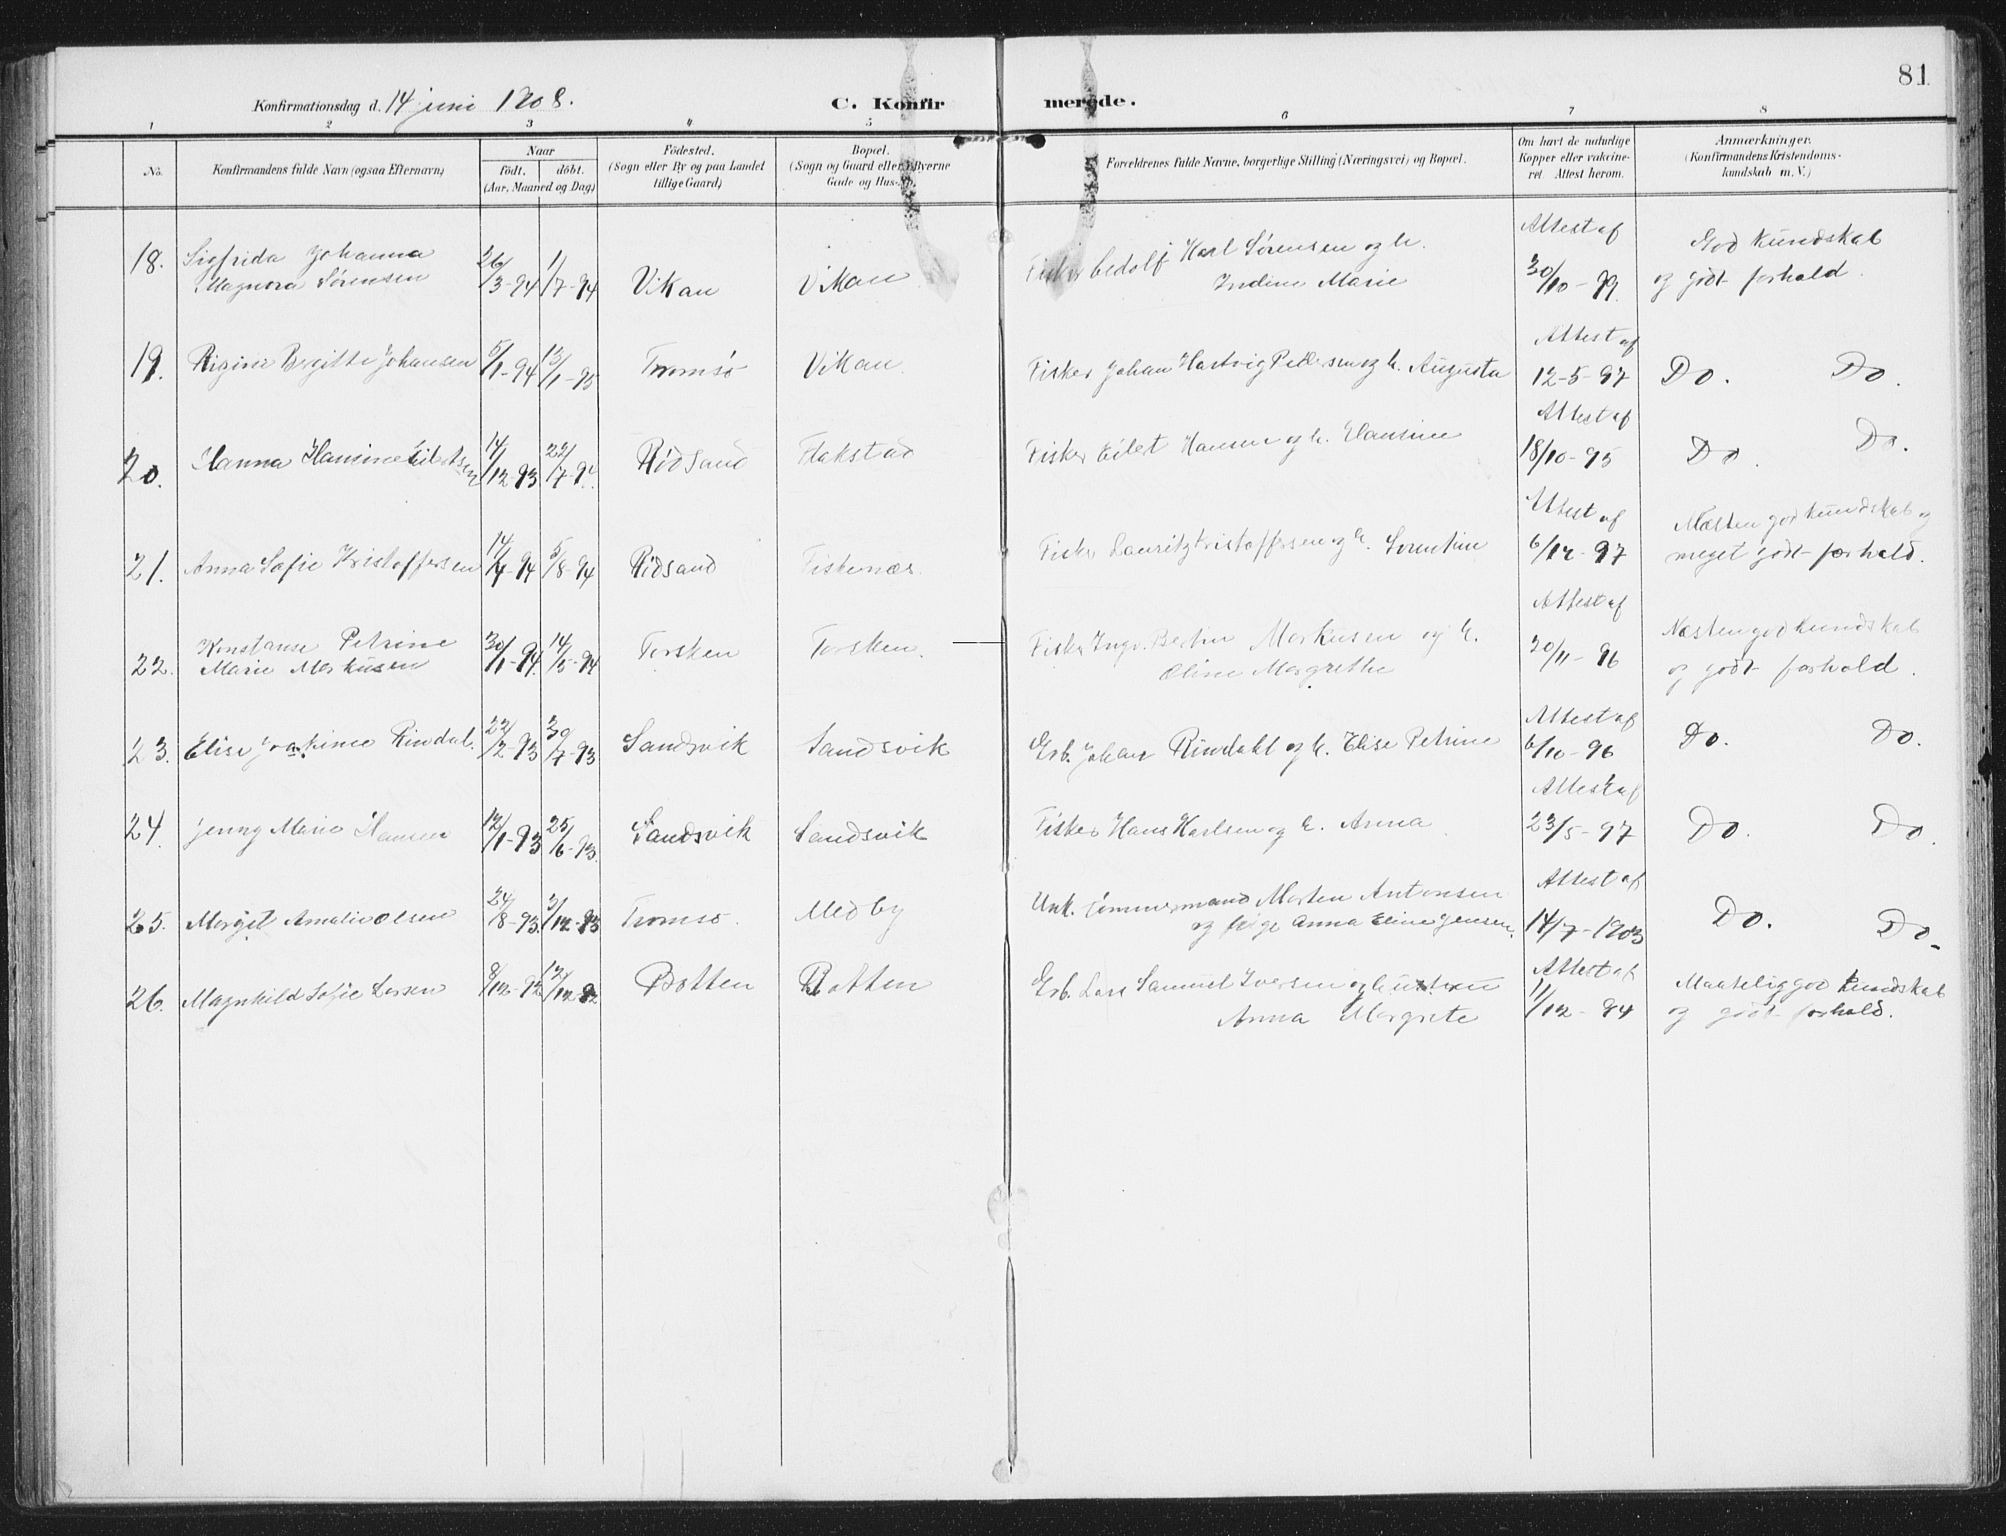 81
Konfirmationsdag d. 14 juni 1908. C. Konfirmerede.
1 2 3 4 5 6 7 8
No. Konfirmandens fulde Navn (ogsaa Efternavn) Naar födt. döbt. (Aar, Maaned og Dag) Födested. (Sogn eller By og paa Landet tillige Gaard) Bopæl. (Sogn og Gaard eller i Byerne Gade og Hus-No. Forældrenes fulde Navne, borgerlige Stilling (Næringsvei) og Bopæl. Om havt de naturlige Kopper eller vakcineret Attest herom. Anmærkninger. (Konfirmandens Kristendomskundskab m. V.)
18. Sigfrida Johanna 26/3-94 1/7-94 Vikan Vikan Fisker Edolf Karl Sørensen og h. Attest af God kundskab
Magnora Sørensen Indine Marie 30/10-99. og godt forhold.
19. Rigine Bergitte Johansen 5/1-94 13/1-95 Tromsø Vikan. Fisker Johan Hartvig Pedersen og h. Augusta Attest af 12-5-97 Do. Do.
20. Hanna Hansine Eilertsen 14/12-93 22/7-94. Rödsand Flakstad Fisker Eilert Hansen og h. Hansine Attest af 18/10-95 Do. Do.
21. Anna Sofie Kristoffersen 14/4-94 5/8-94 Rödsand Fiskenæs. Fisker Lauritz Kristoffersen og h. Sorentine Attest af 6/12-97 Næsten god kundskab og
meget godt forhold.
22. Konstanse Petrine 30/1-94. 14/5-94 Torsken Torsken. Fisker Ingv. Bertin Markusen og h. Attest af Næsten god kundskab
Marie Markusen Oline Margrethe 20/11-96 og godt forhold.
23. Elise Joakime Rindal. 22/2-93 30/7-93 Sandsvik Sandsvik Erb. Johan Rindahl og h. Elise Petrine Attest af 6/10-96 Do. Do.
24. Jenny Marie Hansen 12/1-93 25/6-93. Sandsvik Sandsvik Fisker Hans Karlsen og h. Anna Attest af 23/5-97 Do. Do.
25. Margit Amalie Olsen 24/8-93. 3/12-93 Tromsø. Medby Unk. Tømmermand Morten Antonsen Attest af Do. Do.
og pige Anna Eline Jensen. 14/7-1903
26. Magnhild Sofie Larsen 8/12-92 Botten Botten Erb. Lars Samuel Iversen og hustru Attest af Maatelig god kundskab
Anna Margrete 11/12-94 og godt forhold.